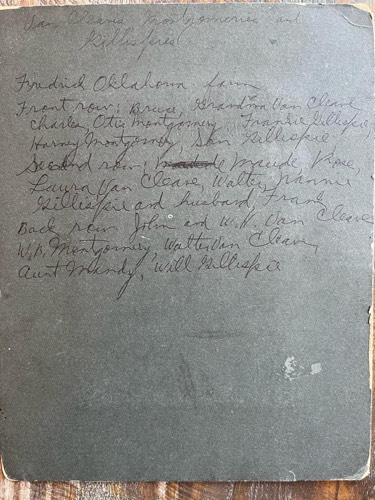 Van Cleaves Montgomeries and
Gillispies
Fredrick Oklahoma farm
Front row: Bruce, Grandma Van Cleave
Charles Otis Montgomery Frankie Gillispie,
Harvey Montgomery, Son Gillispie
Second row: Maude Rose,
Laura Van Cleave, Walter, Fannie
Gillispie and husband, Frank
Back row John and W. V. Van Cleave
W. B. Montgomery Walter Van Cleave,
Aunt Mandy, Will Gillispie